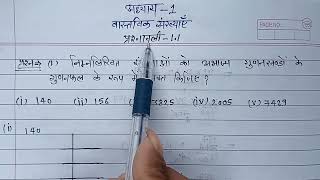 अध्याय - 1
वास्तविक संख्याएँ
प्रश्नावली - 1.1
प्रश्न (1) निम्नलिखित को अभाज्य गुणनखण्डों के
गुणनफल के रूप में कीजिए ?
(i) 140 (ii) 156 3825 (iv) 2005 (v) 7429
(i) 140